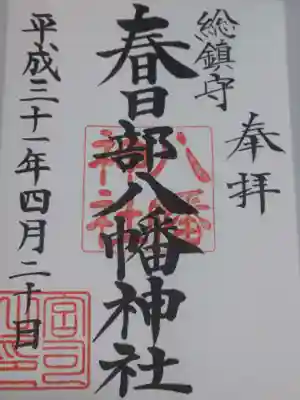 奉拝
総鎮守
春日部八幡神社
八幡神社
平成三十一年四月二十日
宮司之印